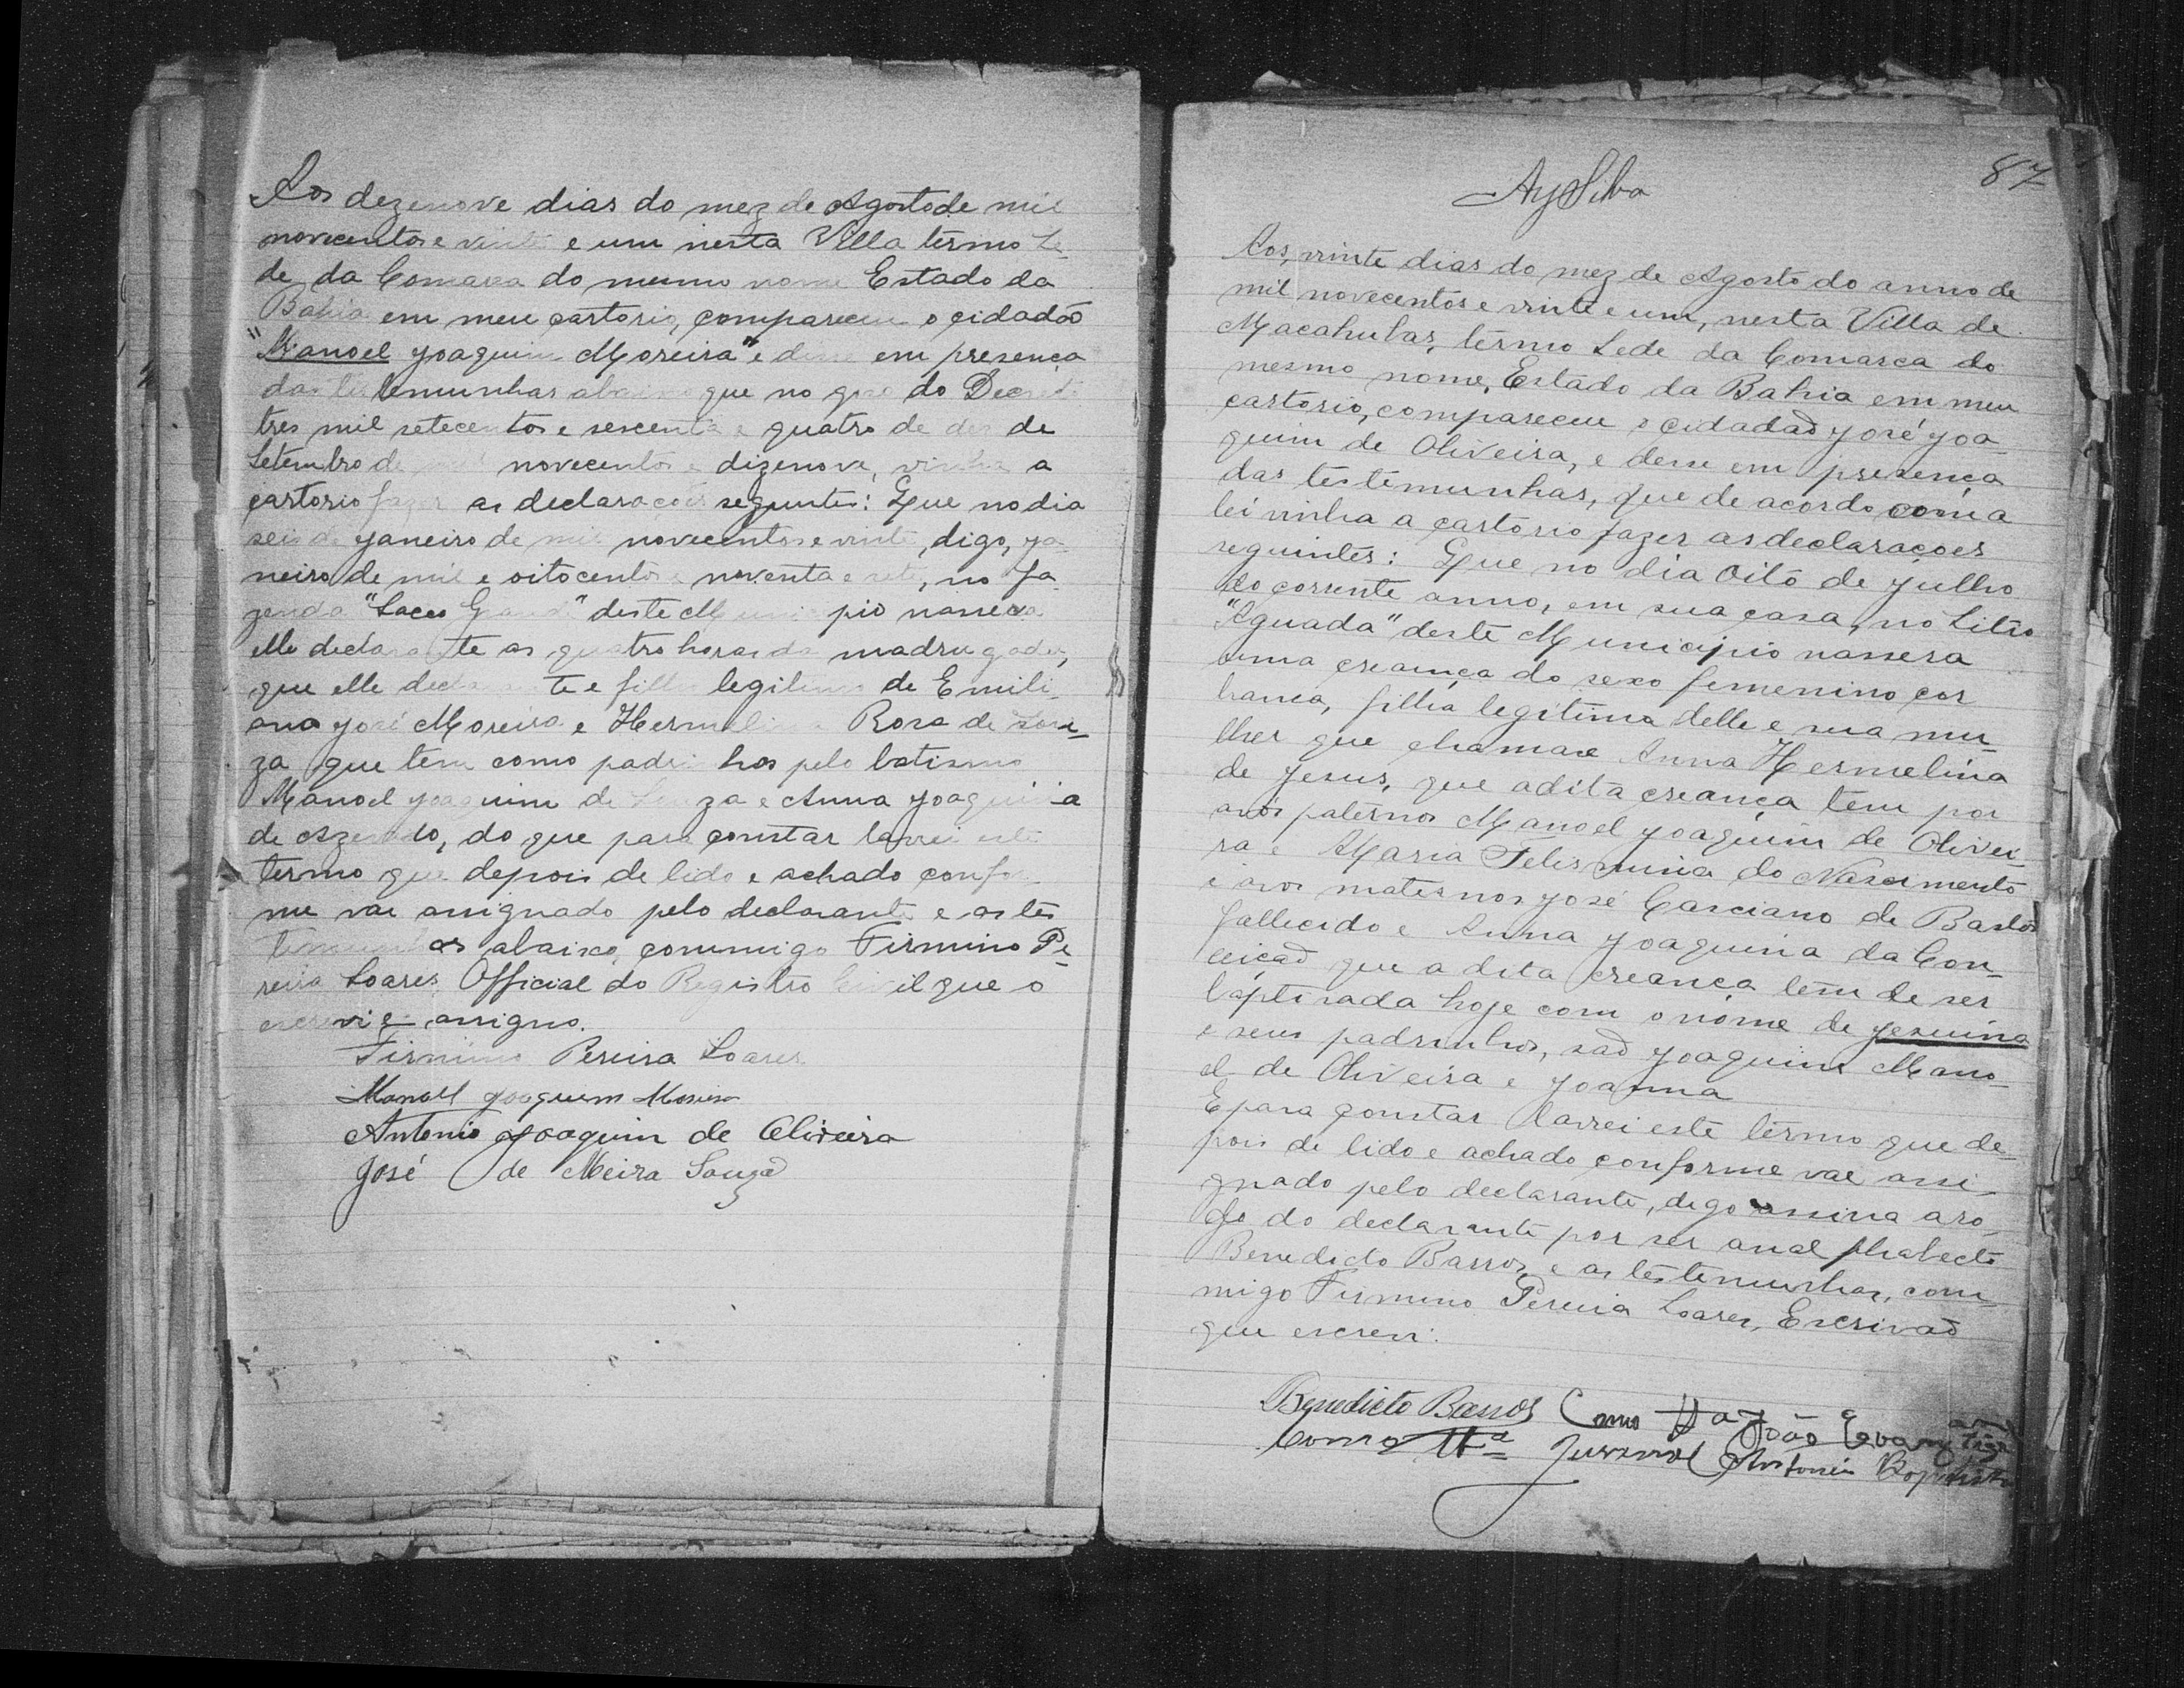 Aos dezenove dias do mez de Agosto de mil
novecentos e vinte e um nesta Villa têrmo Se
de da Comarca do mesmo nome Estado da
Bahia em meu cartorio, compareceu o cidadão
"Manoel Joaquim Moreira" e disse em presença
das testemunhas abaixo que no goso do Decreto
tres mil setecentos e sescenta e quatro de des de
Setembro de mil novecentos e dizenove, vinha a
cartorio fazer as declarações seguintes: Que no dia
seis de Janeiro de mil novecentos e vinte, digo, ja
neiro de mil e oitocentos e noventa e sete, no fa
zenda "Sacco Grande" deste Municipio nascera
elle declarante as quatro horas da madrugada,
que elle declarante e filho legitimo de Emili
ano José Moreira e Hermelina Rosa de Sou_
za que tem como padrinhos pelo batismo
Manoel Joaquim de Souza e Anna Joaquina
de Azevedo, do que para constar lavrei este
termo que depois de lido e achado confor
me vae assignado pelo declarante e as tes
temunhas abaixo, commigo Firmino Pe
reira Soares Official do Registro Civil que o
escrevi e assigno.
Firmino Pereira Soares
Manoel Joaquim Moreira
Antonio Joaquim de Oliveira
José de Meira Souza
87
Ay Silva
Aos, vinte dias do mez de Agosto do anno de
mil novecentos e vinte e um, nesta Villa de
Macahubas, têrmo Sede da Comarca do
mesmo nome, Estado da Bahia em meu
cartorio, compareceu o cidadaõ José Joa
quim de Oliveira, e disse em presença
das testemunhas, que de acordo com a
lei vinha a cartorio fazer as declaraçoes
seguintes: Que no dia Oito de julho
do corrente anno, em sua casa, no Sitio
"Aguada" deste Municipio nassera
uma creança do sexo femenino cor
branca, filha legitima delle e sua mu_
lher que chamase Anna Hermelina
de Jesus, que a dita creança tem por
avós paternos Manoel Joaquim de Olivei_
ra e Maria Felismina do Nascimento
e avos maternos José Casciano de Bastos
fallecido e Anna Joaquina da Con_
ceiçaõ que a dita creança tem de ser
baptisada hoje com o nome de Jesuina
e seus padrinhos, saõ Joaquim Mano_
el de Oliveira e Joanna
E para constar lavrei este têrmo que de_
pois de lido e achado conforme vae assi_
gnado pelo declarante, digo assina a ro_
go do declarante por ser anal phabecto
Benedicto Barros, e as testemunhas, com_
migo Firmino Pereira Soares, Escrivaõ
que escrevi.
Benedicto Barros Como Ta João Evangelista
Como Ta Juvenal Antonio Baptista